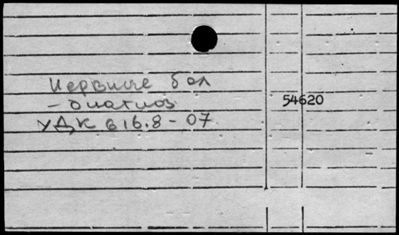 Нервные бол
- диагноз 54620
УДК 616.8-07